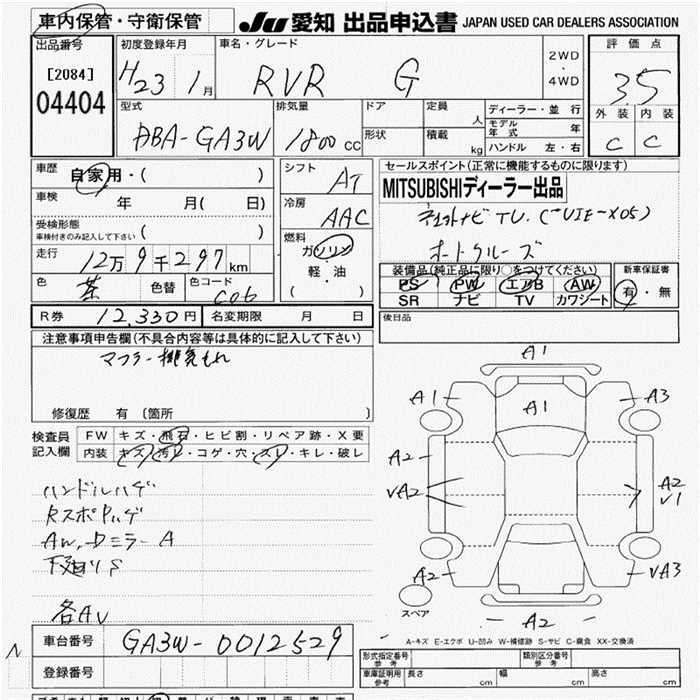 車内保管・守衛保管
JU 愛知 出品申込書 JAPAN USED CAR DEALERS ASSOCIATION
出品番号
[2084]
04404
初度登録年月
H23 1月
車名・グレード
RVR G
2WD
・
4WD
評価点
3.5
外装 内装
C C
型式
DBA-GA3W
排気量
1800 CC
ドア
形状
定員 人
積載 kg
ディーラー・並行
モデル年式 年
ハンドル 左・右
車歴
自家用・( )
車検 年 月( 日)
受検形態
車検付きのみ記入して下さい ( )
走行
12万9千297km
色 茶 色替 色コード C06
シフト AT
冷房 AAC
燃料
ガソリン
・
軽・油
( )
セールスポイント(正常に機能するものに限ります)
MITSUBISHIディーラー出品
オートクルーズ
装備品(純正品に限り○をつけてください)
PS PW エアB AW
SR ナビ TV カワシート
新車保証書
有・無
R券 12,330円 名変期限 月 日
後日品
注意事項申告欄(不具合内容等は具体的に記入して下さい)
マフラー排気もれ
修復歴 有 〔箇所 〕
検査員記入欄
FW キズ・飛石・ヒビ割・リペア跡・X要
内装 キズ・汚れ・コゲ・穴・スレ・キレ・破レ
ハンドルハゲ
AW,Dミラー A
下廻りS
各AU
A1
A1 A1 A3
A2 A2
VA2 V1
A2 VA3
スペア
A2
A-キズ E-エクボ U-凹み W-補修跡 S-サビ C-腐食 XX-交換済
N
車台番号 GA3W-0012529
登録番号
形式指定番号 参考
類別区分番号 参考
車庫証明用 参考 長さ cm 幅 cm 高さ cm